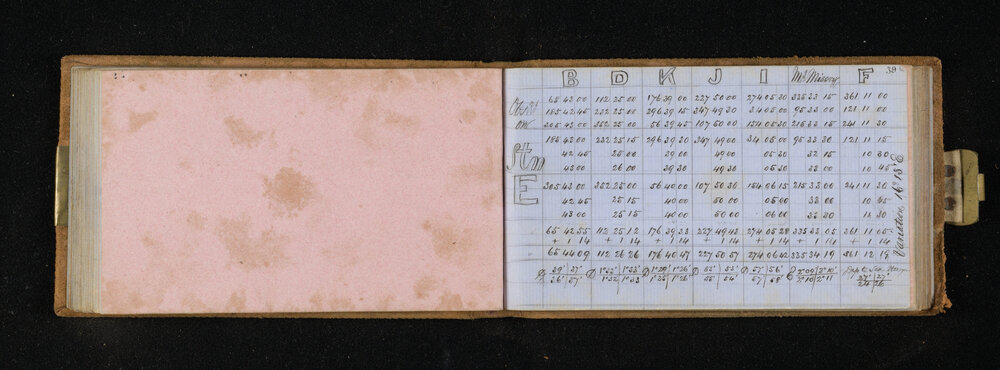 39
B D K J I Mt Misery F
65 43 00 112 25 00 176 39 00 227 50 00 274 05 30 335 33 15 361 11 00
185 42 45 232 25 00 296 39 15 347 49 30 34 05 00 95 33 00 121 11 00
305 43 00 352 25 00 56 39 45 107 50 00 154 05 30 215 33 15 241 11 30
185 43 00 232 25 15 296 39 30 347 49 00 34 05 00 95 33 30 121 11 15
42 45 25 00 29 00 49 00 05 30 33 15 10 30
43 00 26 00 39 30 49 30 05 30 33 00 10 45
Stn
E
305 43 00 352 25 00 56 40 00 107 50 30 154 06 15 215 33 00 241 11 30
42 45 25 15 40 00 50 00 05 00 33 00 10 45
43 00 25 15 40 00 50 00 06 00 33 30 11 30
65 42 55 112 25 12 176 39 33 227 49 43 274 05 28 335 33 05 361 11 05
+ 1 14 + 1 14 + 1 14 + 1 14 + 1 14 + 1 14 + 1 14
65 44 09 112 26 26 176 40 47 227 50 57 274 06 42 335 34 19 361 12 19
Variation 16° 15' E